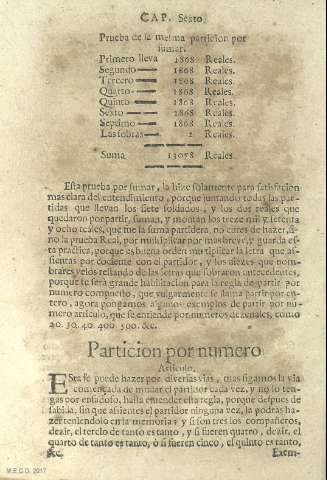 CAP. Sexto.
Prueba de la mesma particion por
sumar.
Primero lleva 1868 Reales.
Segundo 1868 Reales.
Tercero 1868 Reales.
Quarto 1868 Reales.
Quinto 1868 Reales.
Sexto 1868 Reales.
Septimo 1868 Reales.
Las sobras 2 Reales.
Suma 13078 Reales.
Esta prueba por sumar, la hize solamente para satisfacion
mas clara del entendimiento, porque juntando todas las par-
tidas que llevan los siete soldados, y los dos reales que
quedaron por partir, suman, y montan los treze mil y setenta
y ocho reales, que fue la suma partidera, no cures de hazer, si-
no la prueba Real, por multiplicar por mas breve, y guarda es-
ta practica, porque es buena orden multiplicar la letra que as-
sientas por cociente con el partidor, y los diezes que nom-
brares, velos restando de las letras que sobraron antecedentes,
porque te serà grande habilitacion para la regla de partir por
numero compuesto, que vulgarmente se llama partir por en-
tero, agora pongamos algunos exemplos de partir por nu-
mero articulo, que se entiende por numeros dezenales, como
20. 30. 40. 400. 500. &c.
Particion por numero
Articulo.
ESta se puede hazer por diversas vias, mas sigamos la via
començada de mudar el partidor cada vez, y no lo ten-
gas por enfadoso, hasta entender esta regla, porque despues de
sabida, sin que assientes el partidor ninguna vez, la podras ha-
zer teniendolo en la memoria, y si son tres los compañeros,
dezir, el tercio de tanto es tanto, y si fueren quatro, dezir, el
quarto de tanto es tanto, ò si fueren cinco, el quinto es tanto,
&c. Exem-
M.E.C.D. 2017